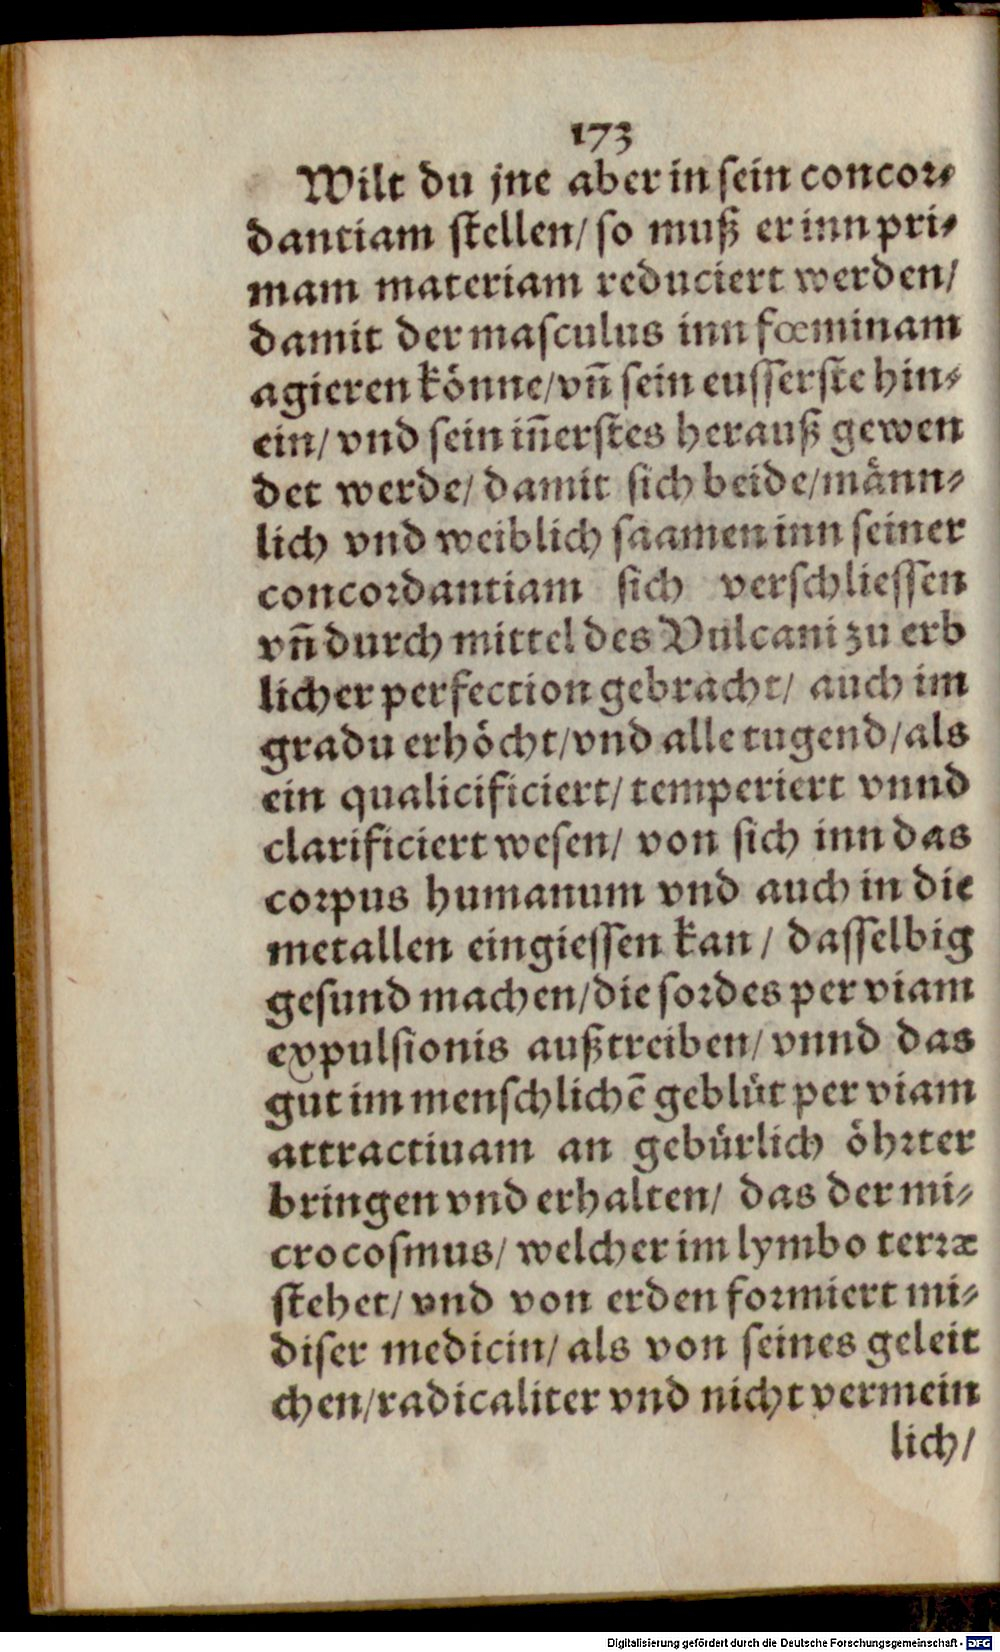 173
Wilt du jne aber in sein concor⸗
dantiam stellen/ so muß er inn pri⸗
mam materiam reduciert werden/
damit der masculus inn fœminam
agieren koͤnne/ vñ sein eusserste hin⸗
ein/ vnd sein iñerstes herauß gewen
det werde/ damit sich beide/ maͤnn⸗
lich vnd weiblich saamen inn seiner
concordantiam sich verschliessen
vñ durch mittel des Vulcani zu erb
licher perfection gebracht/ auch im
gradu erhoͤcht/ vnd alle tugend/ als
ein qualicificiert/ temperiert vnnd
clarificiert wesen/ von sich inn das
corpus humanum vnd auch in die
metallen eingiessen kan/ dasselbig
gesund machen/ die sordes per viam
expulsionis außtreiben/ vnnd das
gut im menschlichē gebluͤt per viam
attractiuam an gebuͤrlich oͤhrter
bringen vnd erhalten/ das der mi⸗
crocosmus/ welcher im lymbo terræ
stehet/ vnd von erden formiert mi⸗
diser medicin/ als von seines geleit
chen/ radicaliter vnd nicht vermein
lich/
Digitalisierung gefördert durch die Deutsche Forschungsgemeinschaft - DFG